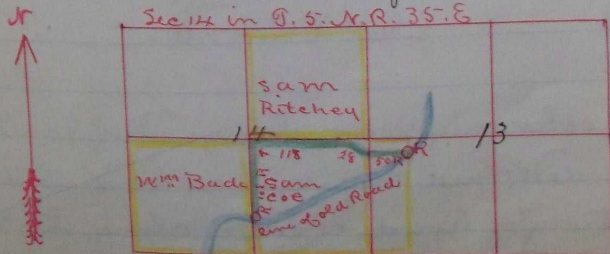 N
Sec 14 in T. 5. N. R. 35. E
Sam
Ritchey
14
13
118
28
50R
R
Wm Bade
Sam
Coe
R
line of old Road